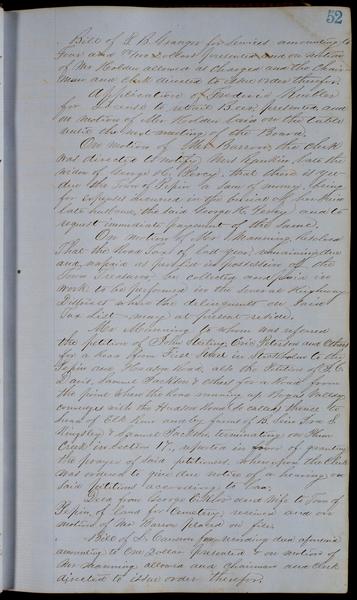 52
Bill of L. B. Granger for Services amounting to
Four and /100 Dollars presented and on motion
of Mr Holden allowed as charged and the Chair
man and clerk directed to issue order therefor
Application of Frederic
for License to retail Beer, presented, and
on motion of Mr Holden laid on the table
until the next meeting of the Board.
On motion of Mr Barron, the clerk
was directed to notify Mrs late the
widow of George H. Persey, that there is yet
due the Town of Pepin a sum of money, being
for expenses incurred in the burial of her
late husband, the said George H. Persey and to
request immediate payment of the same.
On motion of Mr Manning, Resolved
That the Road Tax of last year, remaining due
and unpaid be placed in possession of the
Town Treasurer for collecting and paid in
work to be performed in the several Highway
Districts where the delinquents on said
Tax List may at present reside.
Mr Manning to whom was referred
the petition of John Sterling, Peterson and others
for a Road from First Street in to the
Pepin and Hudson Road, also the Petition of
Davis, Samuel Jackson & others for a Road from
the point where the Road running up Bogus Valley
converges with the Hudson Road so called thence to
head of Elk Run and by farms of B.
Kingsley & Samuel terminating on Plum
Creek in Section 17, reported in favor of granting
the prayer of said petitioners, whereupon the Clerk
was ordered to give due notice of a hearing on
said petitions according to law.
Deed from George C. and Wife to Town of
Pepin, of land for Cemetery, received and on
motion of Mr Barron placed on file.
Bill of S. Cameron for mending
amounting to One Dollar presented & on motion of
Mr Manning allowed and Chairman and clerk
directed to issue order therefor